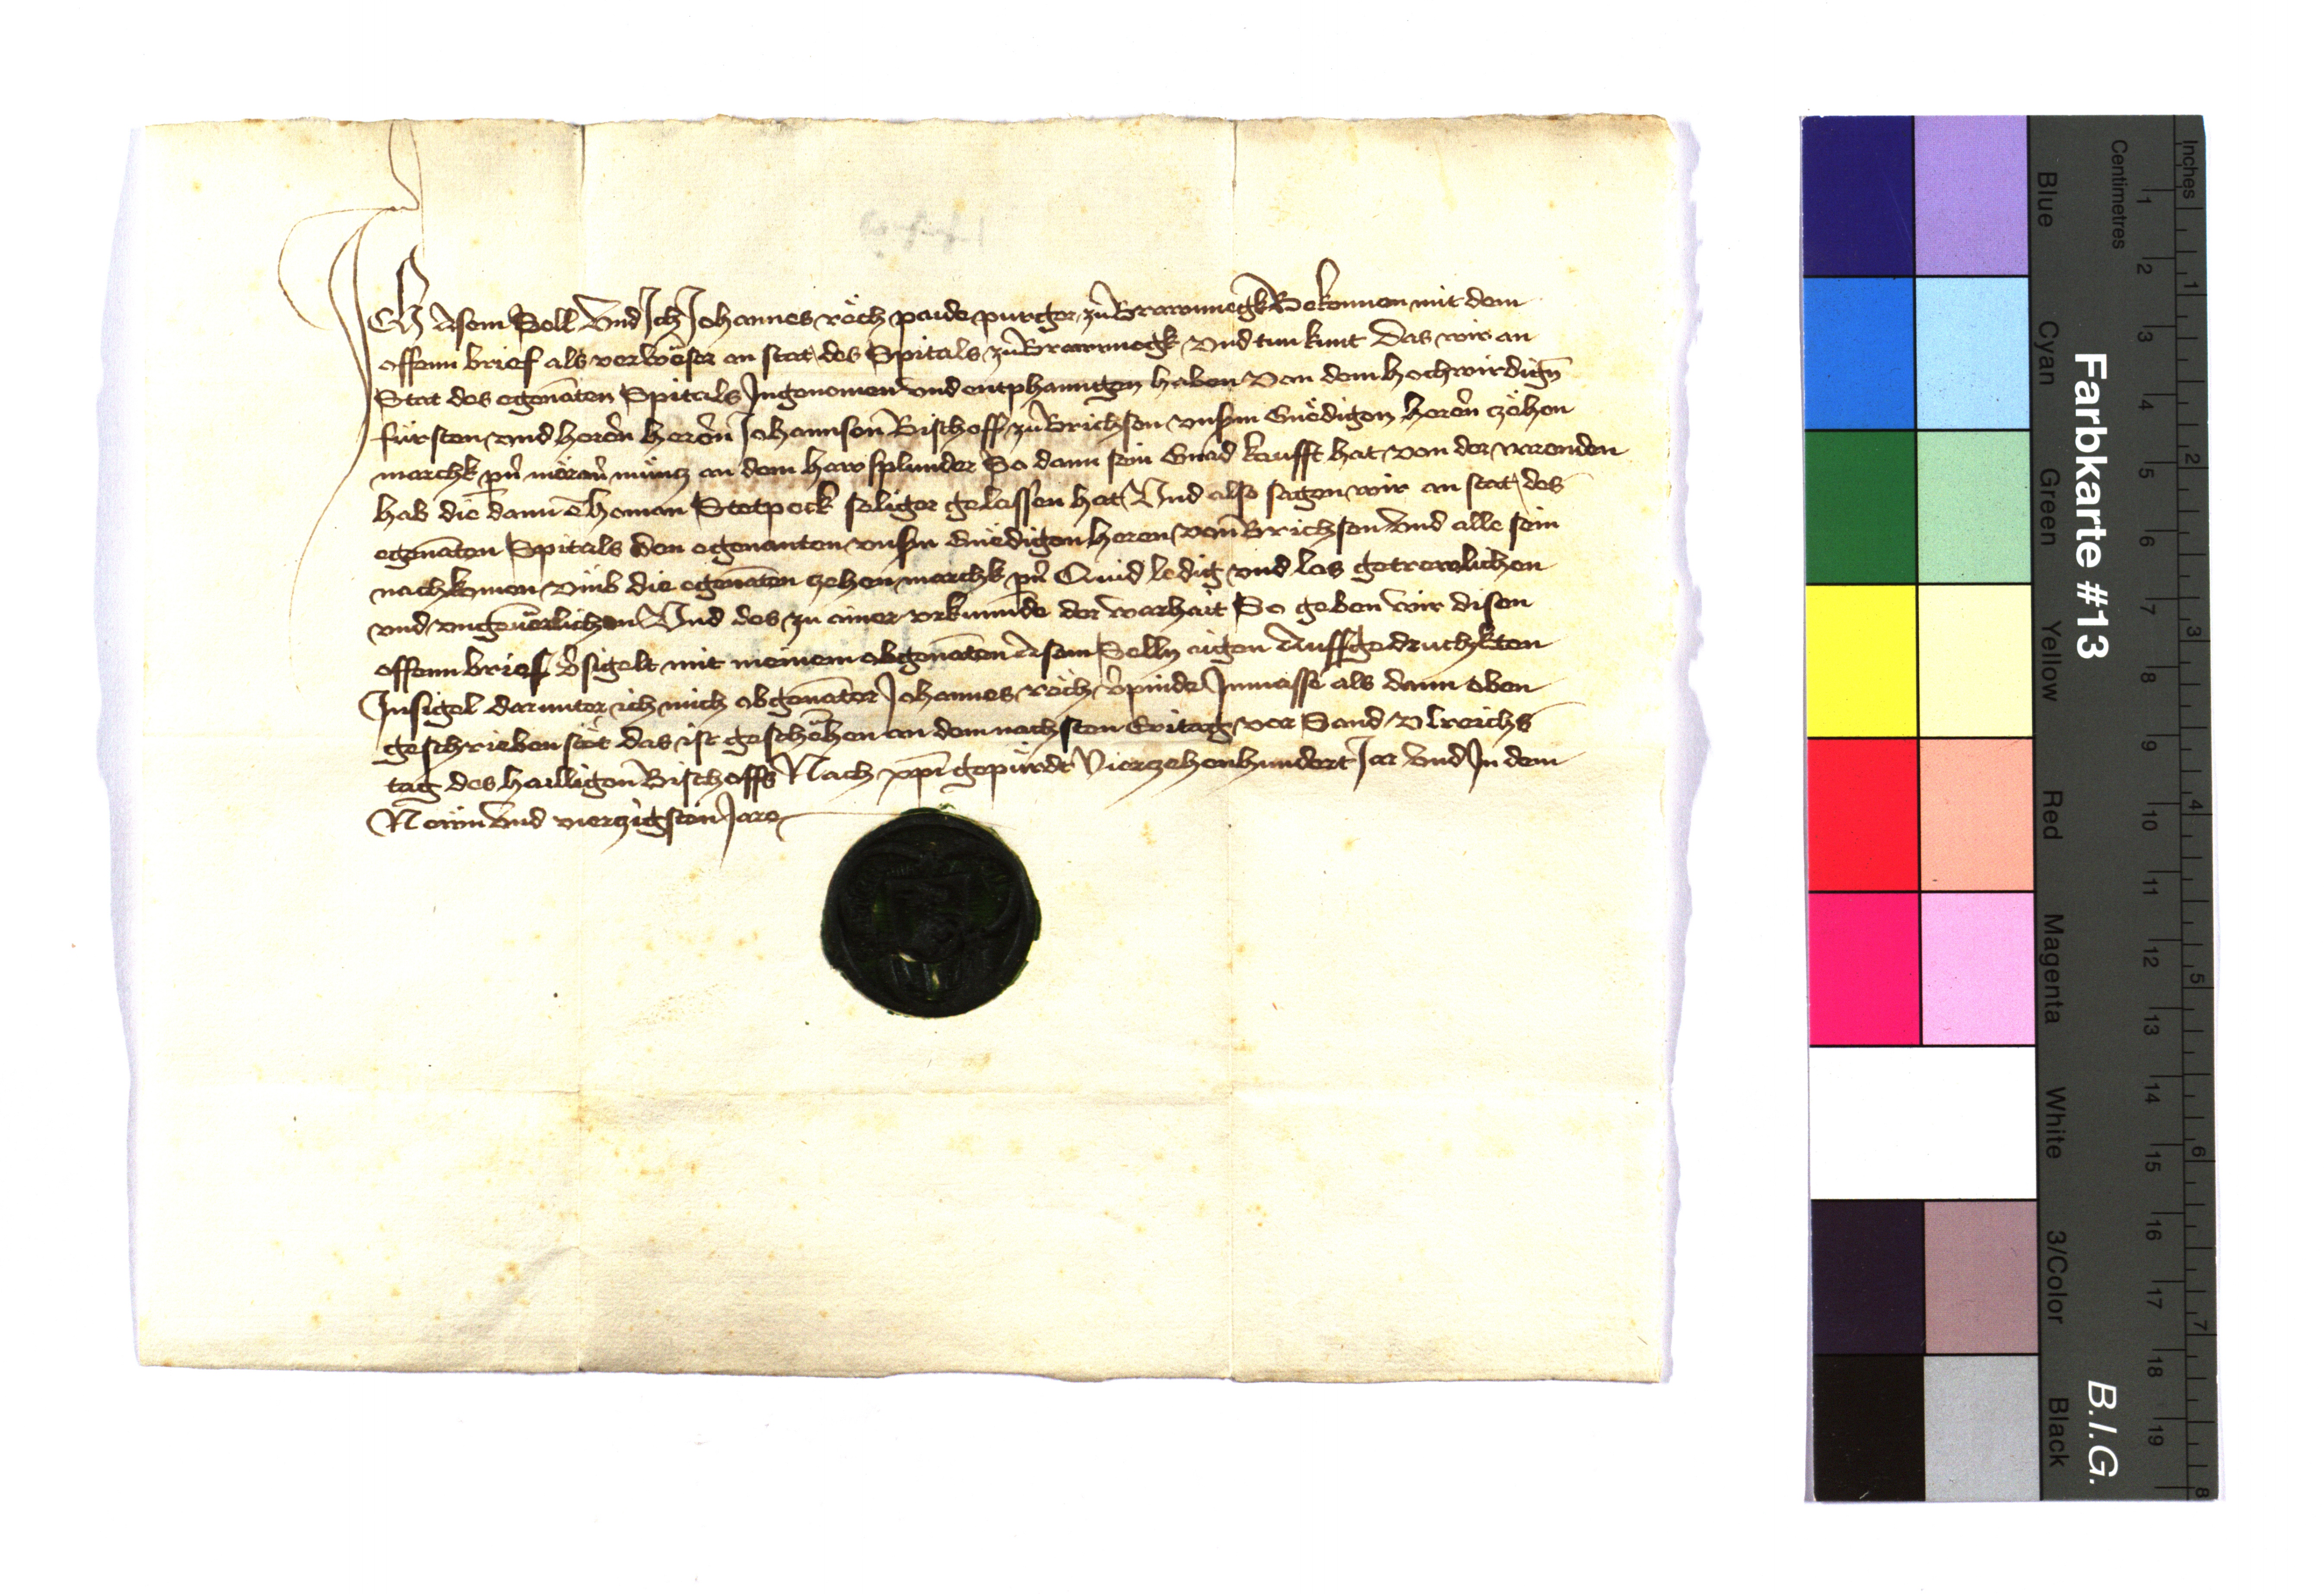 ICh Asem Soll Vnd Ich Johannes röch paide purger zu Brawnnegk Bekennen mit dem
offenn brief als verweser an stat des Spitals zu Brawnnegk vnd tun kunt Das wir an
Stat des egenāten Spitals Ingenomen vnd entphanngen haben von dem hochwirdign̄
fürsten vnd heren heren Johannsen Bischoff zu Brichsen vnsm Gnedigen heren zehen
marchk pn̄ meran̄ müncz an dem hawsplunder So dann sein Gnad kaufft hat von der varenden
hab die dann heman Stetpeck seliger gelassen hat Vnd also sagen wir an stat des
egenāten Spitals den egenanten vnsm Gnedigen heren von Brichsen vnd alle sein
nachkomen vmb die egenāten zehen marchk pn̄ Quid ledig vnd los getrewlichen
vnd vngeuerlichen Vnd des zu ainer vrkunnde der warhait So geben wir disen
offenn brief v̄sigelt mit meinem obgenāten Asem Solln aigen Auffgedruchkten
Insigel darunter ich mich obgenāter Johannes röch v̄pinde Inmasse als dann oben
geschrieben stet das ist geschehen an dem nachsten Eritag vor Sand Vlreichs
tag des hailligen Bischoffs Nach xp̄i gepürde Vierzehenhundert Jar vnd In dem
Newn vnd vierzigsten Jare
Farbkarte #13
B.I.G.
Blue
Cyan
Green
Yellow
Red
Magenta
White
3/Color
Black
Centimetres
1 2 3 4 5 6 7 8 9 10 11 12 13 14 15 16 17 18 19
Inches
1 2 3 4 5 6 7 8